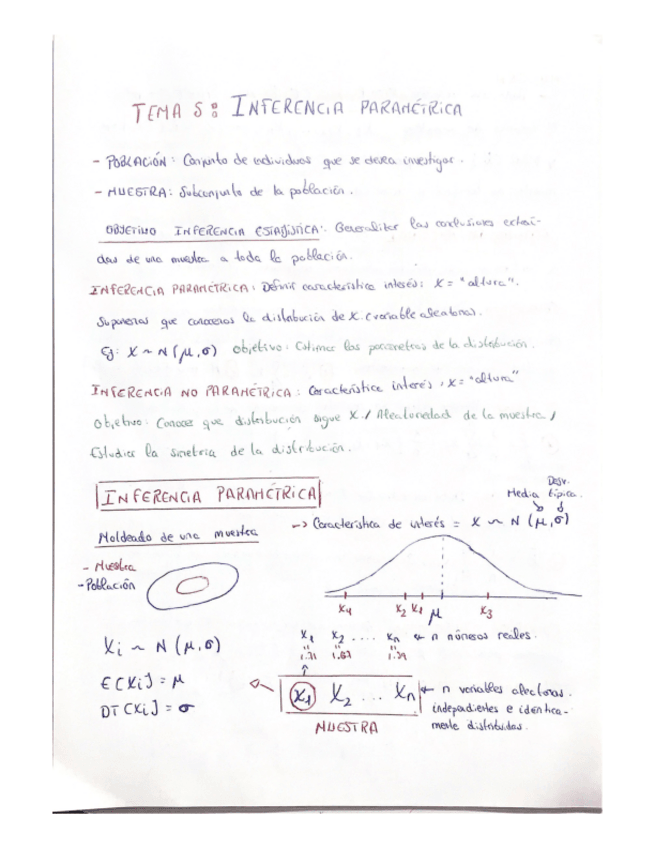 TEMA 5: INFERENCIA PARAMÉTRICA
- POBLACIÓN: Conjunto de individuos que se desea investigar.
- MUESTRA: Subconjunto de la población.
OBJETIVO INFERENCIA ESTADÍSTICA: Generalizar las conclusiones extraí-
das de una muestra a toda la población.
INFERENCIA PARAMÉTRICA: Definir característica interés: X = "altura".
Supuestas que conocemos la distribución de X (variable aleatoria).
Ej: X ~ N(μ,σ) objetivo: Estimar los parámetros de la distribución.
INFERENCIA NO PARAMÉTRICA: Característica interés, X = "altura"
Objetivo: Conocer que distribución sigue X / Aleatoriedad de la muestra /
Estudiar la simetria de la distribución.
INFERENCIA PARAMÉTRICA
Desv.
Media típica.
Moldeado de una muestra
-> Característica de interés = X ~ N(μ,σ)
- Muestra
- Población
X4 X2 X1 μ X3
Xi ~ N(μ,σ)
E[Xi] = μ
DT[Xi] = σ
X1 X2 .... Xn ← n números reales.
" " "
1.71 1.67 1.79
X1 X2 ... Xn ← n variables aleatorias.
independientes e identica-
mente distribuidas.
MUESTRA